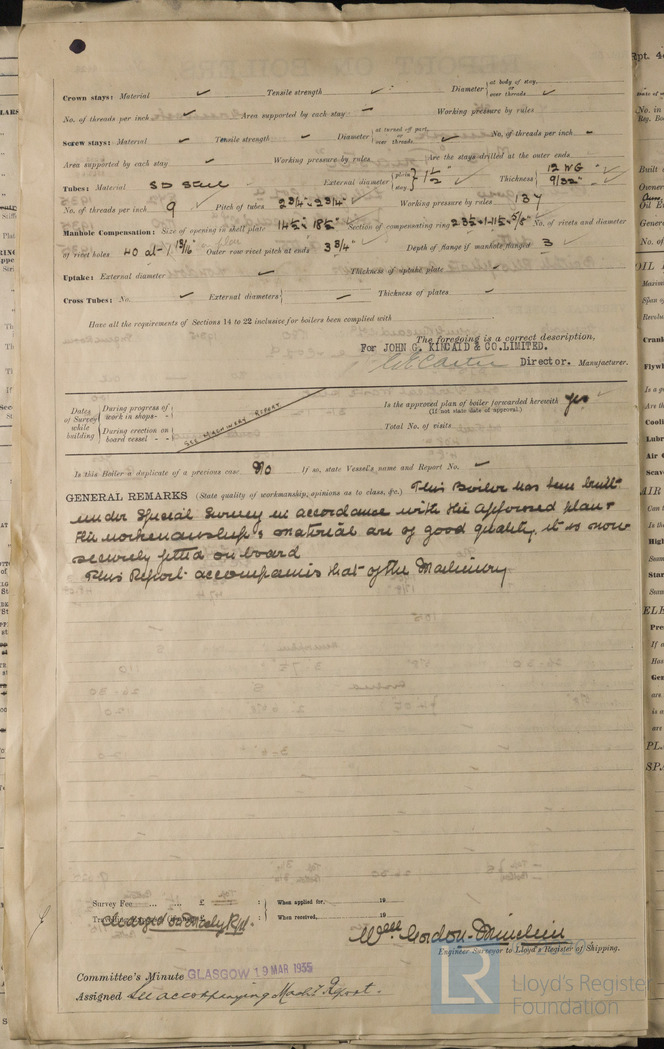 Crown stays: Material ✓ Tensile strength ✓ Diameter { at body of stay, or over threads ✓
No. of threads per inch ✓ Area supported by each stay - Working pressure by rules ✓
Screw stays: Material ✓ Tensile strength ✓ Diameter { at turned off part, or over threads ✓ No. of threads per inch -
Area supported by each stay ✓ Working pressure by rules ✓ Are the stays drilled at the outer ends ✓
Tubes: Material S D Steel External diameter { plain stay } 1 1/2" Thickness { 12 WG 9/32"
No. of threads per inch 9 Pitch of tubes 2 3/4" x 2 3/4" Working pressure by rules 137
Manhole Compensation: Size of opening in shell plate 14 1/2 x 18 1/2 Section of compensating ring No. of rivets and diameter
of rivet holes 40 at 1 3/16" Outer row rivet pitch at ends 3 3/4" Depth of flange if manhole flanged 3
Uptake: External diameter ✓ Thickness of uptake plate ✓
Cross Tubes: No. ✓ External diameters { ✓ Thickness of plates ✓
Have all the requirements of Sections 14 to 22 inclusive for boilers been complied with
The foregoing is a correct description,
For JOHN G. KINCAID & CO. LIMITED.
Director. Manufacturer.
Dates of Survey while building { During progress of work in shops - - During erection on board vessel - - } SEE MACHINERY REPORT
Is the approved plan of boiler forwarded herewith Yes
(If not state date of approval.)
Total No. of visits
Is this Boiler a duplicate of a previous case No If so, state Vessel's name and Report No. ✓
GENERAL REMARKS (State quality of workmanship, opinions as to class, &c.) This Boiler has been built
under Special Survey in accordance with the approved plan &
the workmanship & material are of good quality, it is now
securely fitted on board
This Report accompanies that of the Machinery
Survey Fee ... ... £ : : When applied for, 19
Travelling Expenses (if any) £ : : When received, 19
Charged on Mchy Rpt.
Wm Gordon-
Engineer Surveyor to Lloyd's Register of Shipping.
Committee's Minute GLASGOW 19 MAR 1935
Assigned See accompanying Machy Report.
LR Lloyd's Register
Foundation
Rpt. 4